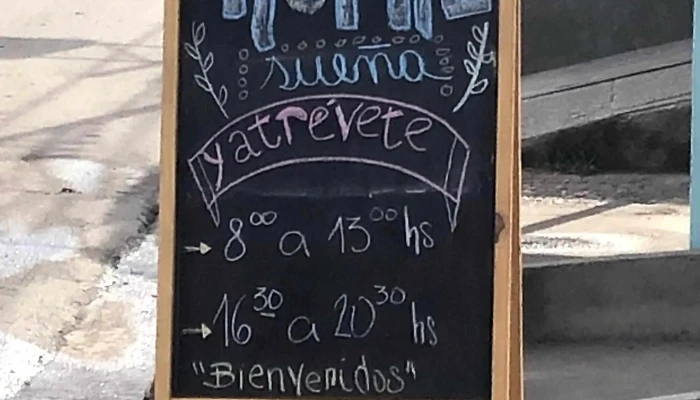 sueña
y atrévete
8⁰⁰ a 13⁰⁰ hs
16³⁰ a 20³⁰ hs
"Bienvenidos"